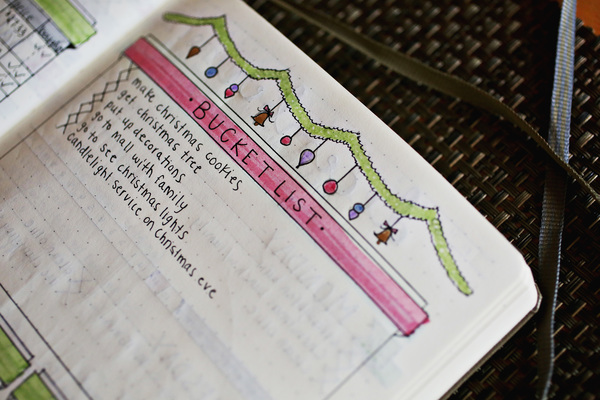 · BUCKET LIST ·
make christmas cookies
get christmas tree
put up decorations
go to mall with family
go to see christmas lights
candlelight service on Christmas eve